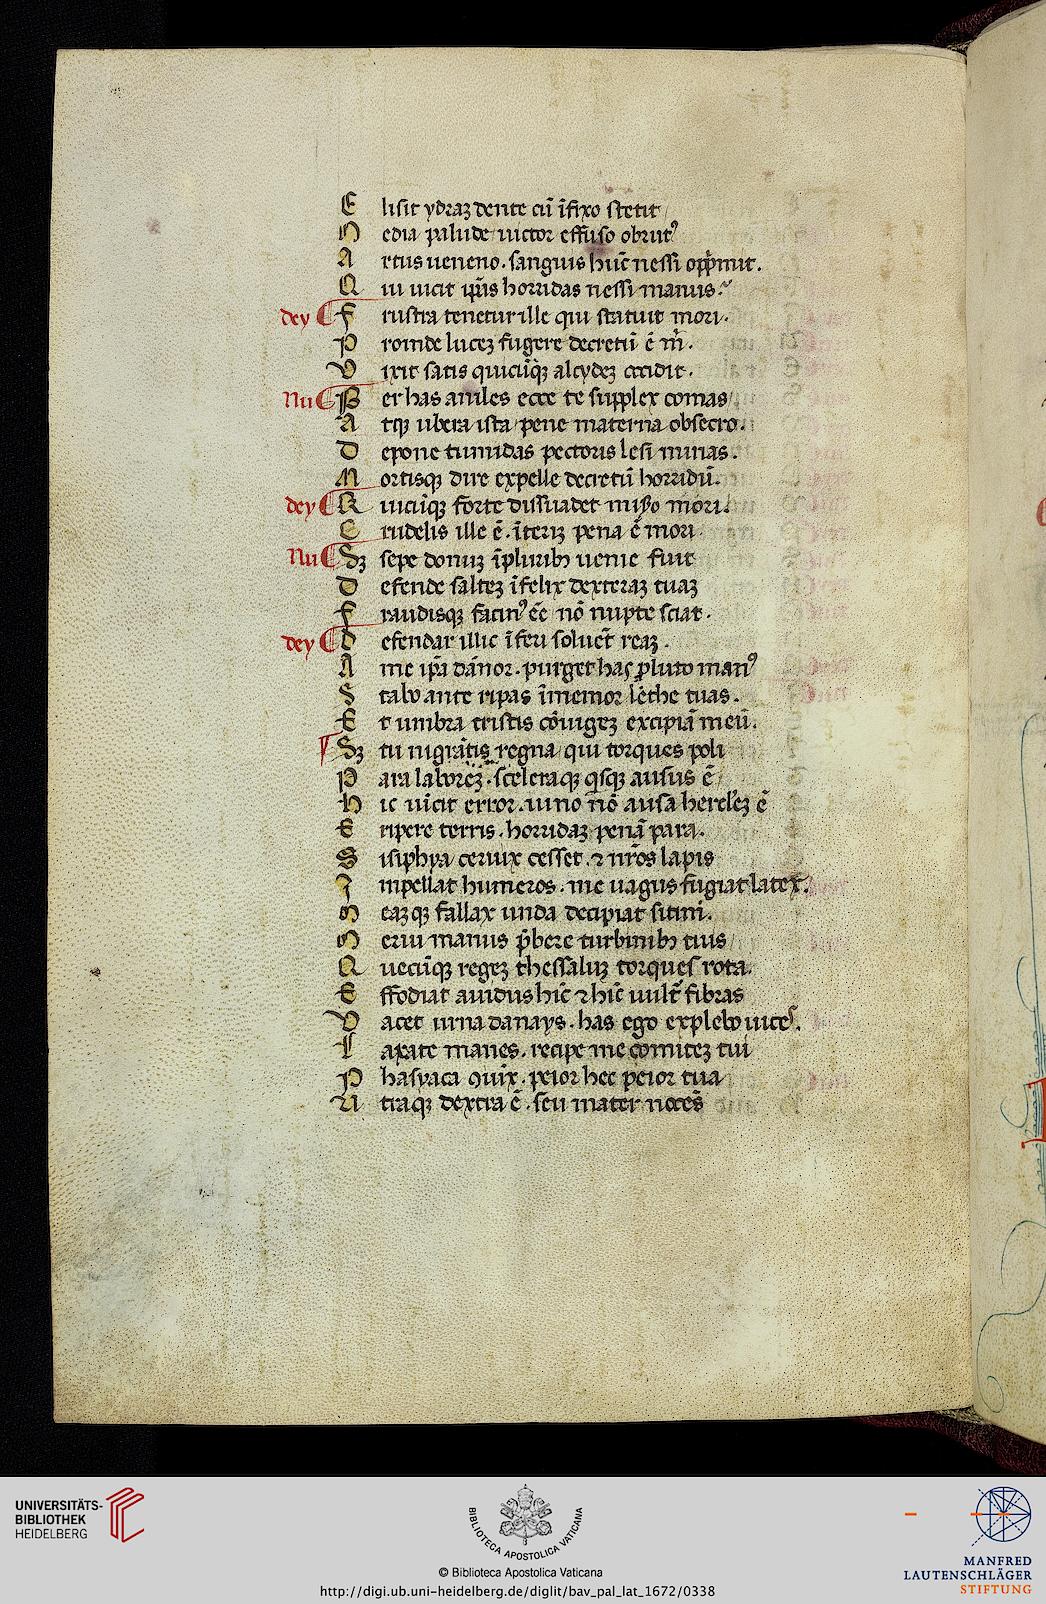 E lisit ydraȝ dente cū īfixo stetit
H edia palude uictor effuso obrutꝰ
A rtus ueneno. sanguis hūc nessi opp̄mit.
Q ui uicit ip̄is horridas nessi manus.
dey F rustra tenetur ille qui statuit mori.
P roinde luceȝ fugere decretū ē m̄.
V ixit satis quicūqȝ alcydeȝ occidit.
Nu P er has aniles ecce te supplex comas
A tqȝ ubera ista pene materna obsecro.
D epone tumidas pectoris lesi minas.
M ortisqȝ dire expelle decretū horridū.
dey Q uicūqȝ forte dissuadet miẞo mori.
C rudelis ille ē. īteriȝ pena ē mori
Nu Sȝ sepe donuȝ īpluribꝫ uenie fuit
D efende salteȝ īfelix dexteraȝ tuaȝ
F raudisqȝ facinꝰ ēē nō nupte sciat.
dey D efendar illic īferi soluēt reaȝ.
A me ip̄a dānor. purget has pluto manꝰ
S tabo ante ripas īmemor lethe tuas.
E t umbra tristis cōiugeȝ excipiā meū.
Sȝ tu nigrātis regna qui torques poli
P ara laboreȝ. sceleraqȝ qisqȝ ausus ē
H ic uīcit error. iuno nō ausa hercleȝ ē
E ripere terris. horridaȝ penā para.
S isiphya ceruix cesset. ⁊ nr̄os lapis
I mpellat humeros. me uagus fugiat latex.
M eaȝqȝ fallax unda decipiat sitim.
M erui manus p̄bere turbinibꝫ tuis
Q uecūqȝ regeȝ thessaluȝ torques rota.
E ffodiat auidus hīc ⁊ hīc uult̄ fibras
V acet urna danays. has ego explebo uices.
L axate manes. recipe me comiteȝ tui
P hasyaca ꝯiūx. peior hec peior tua
U traqȝ dextra ē. seu mater noces
UNIVERSITÄTS-
BIBLIOTHEK
HEIDELBERG
BIBLIOTECA APOSTOLICA VATICANA
© Biblioteca Apostolica Vaticana
http://digi.ub.uni-heidelberg.de/diglit/bav_pal_lat_1672/0338
MANFRED
LAUTENSCHLÄGER
STIFTUNG